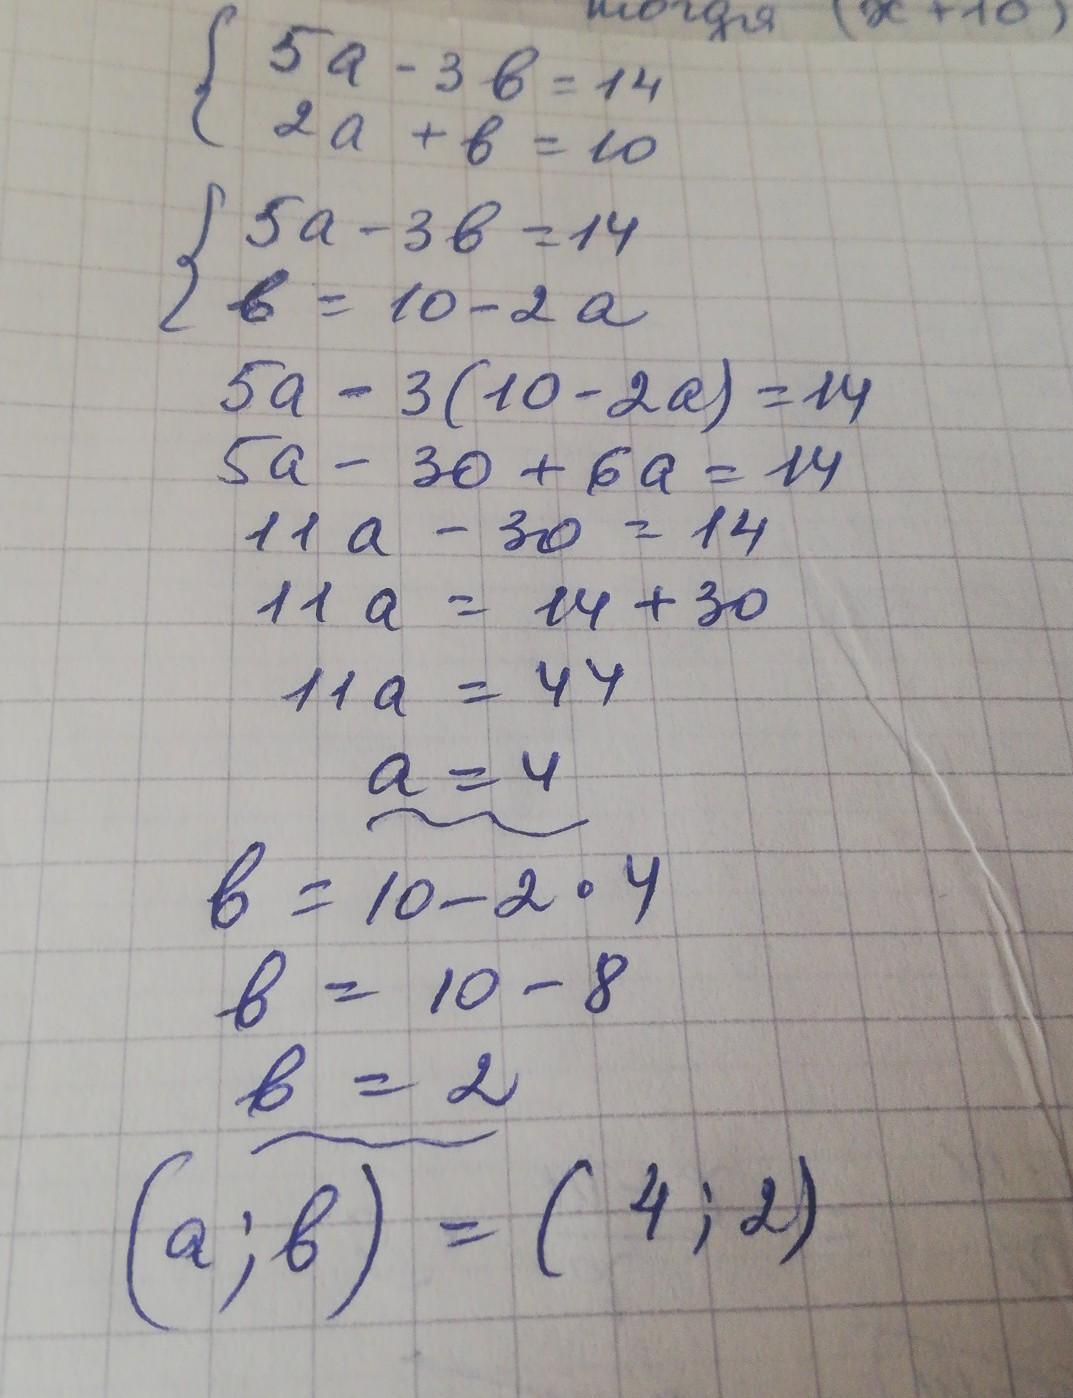 тогда (x+10)
{ 5a - 3b = 14
2a + b = 10
{ 5a - 3b = 14
b = 10 - 2a
5a - 3(10 - 2a) = 14
5a - 30 + 6a = 14
11a - 30 = 14
11a = 14 + 30
11a = 44
a = 4
b = 10 - 2 · 4
b = 10 - 8
b = 2
(a; b) = (4; 2)